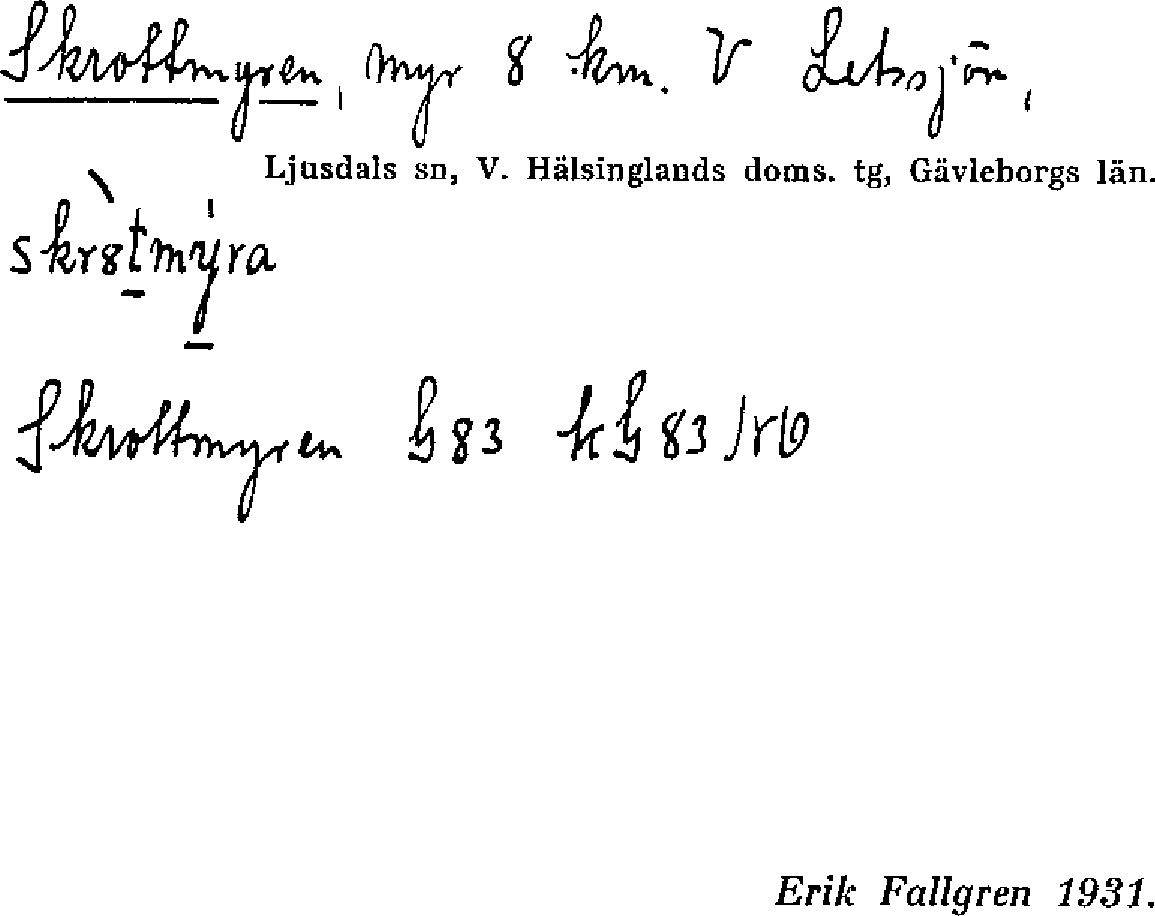 Skrottmyren, myr 8 km. V Letssjön,
Ljusdals sn, V. Hälsinglands doms. tg, Gävleborgs län.
skr8tmyra
Skrottmyren G 83 kG 83 / rÖ
Erik Fallgren 1931.